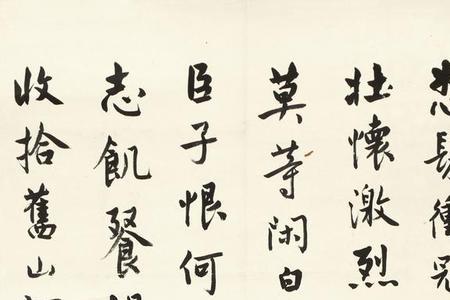 怒髮衝冠
壯懷激烈
莫等閑白
臣子恨何
志飢餐
收拾舊山